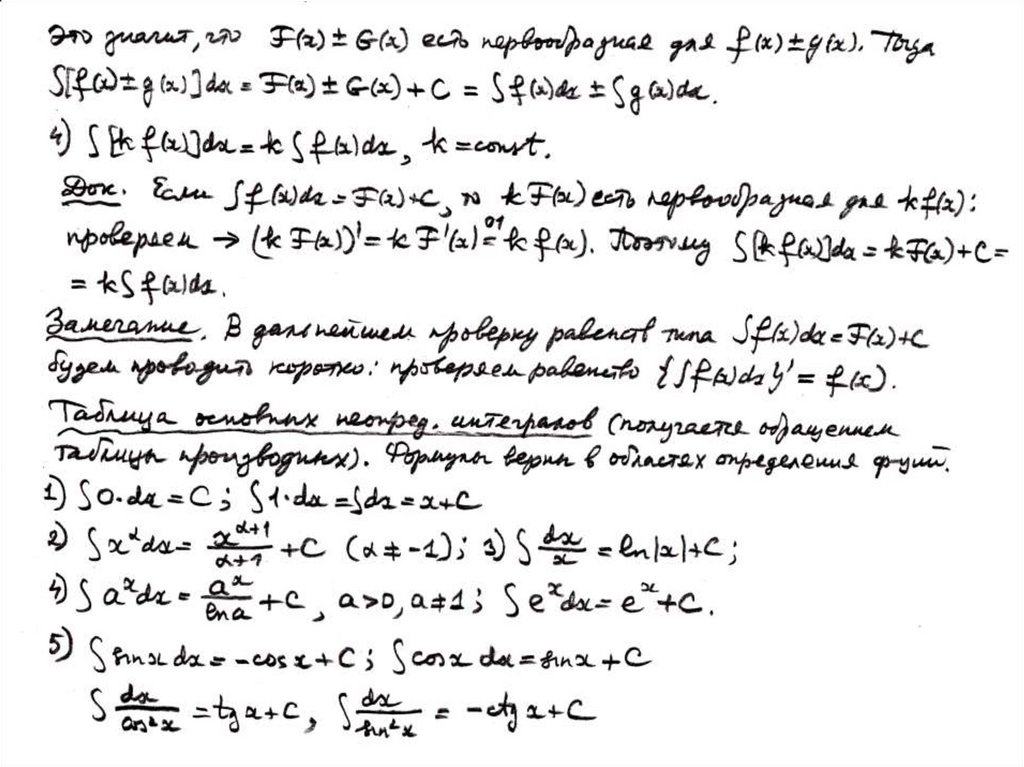 Это значит, что F(x) ± G(x) есть первообразная для f(x) ± g(x). Тогда
∫[f(x) ± g(x)]dx = F(x) ± G(x) + C = ∫f(x)dx ± ∫g(x)dx.
4) ∫[k f(x)]dx = k∫f(x)dx, k = const.
Док. Если ∫f(x)dx = F(x)+C, то kF(x) есть первообразная для kf(x):
проверяем → (kF(x))' = kF'(x) = kf(x). Поэтому ∫[kf(x)]dx = kF(x)+C =
= k∫f(x)dx.
Замечание. В дальнейшем проверку равенств типа ∫f(x)dx = F(x)+C
будем проводить коротко: проверяем равенство {∫f(x)dx}' = f(x).
Таблица основных неопред. интегралов (получается обращением
таблицы производных). Формулы верны в областях определения ф-ций.
1) ∫0·dx = C; ∫1·dx = ∫dx = x+C
2) ∫x^α dx = x^(α+1)/(α+1) + C (α ≠ -1); 3) ∫dx/x = ln|x|+C;
4) ∫a^x dx = a^x/ln a + C, a>0, a≠1; ∫e^x dx = e^x + C.
5) ∫sin x dx = -cos x + C; ∫cos x dx = sin x + C
∫dx/cos²x = tg x + C, ∫dx/sin²x = -ctg x + C